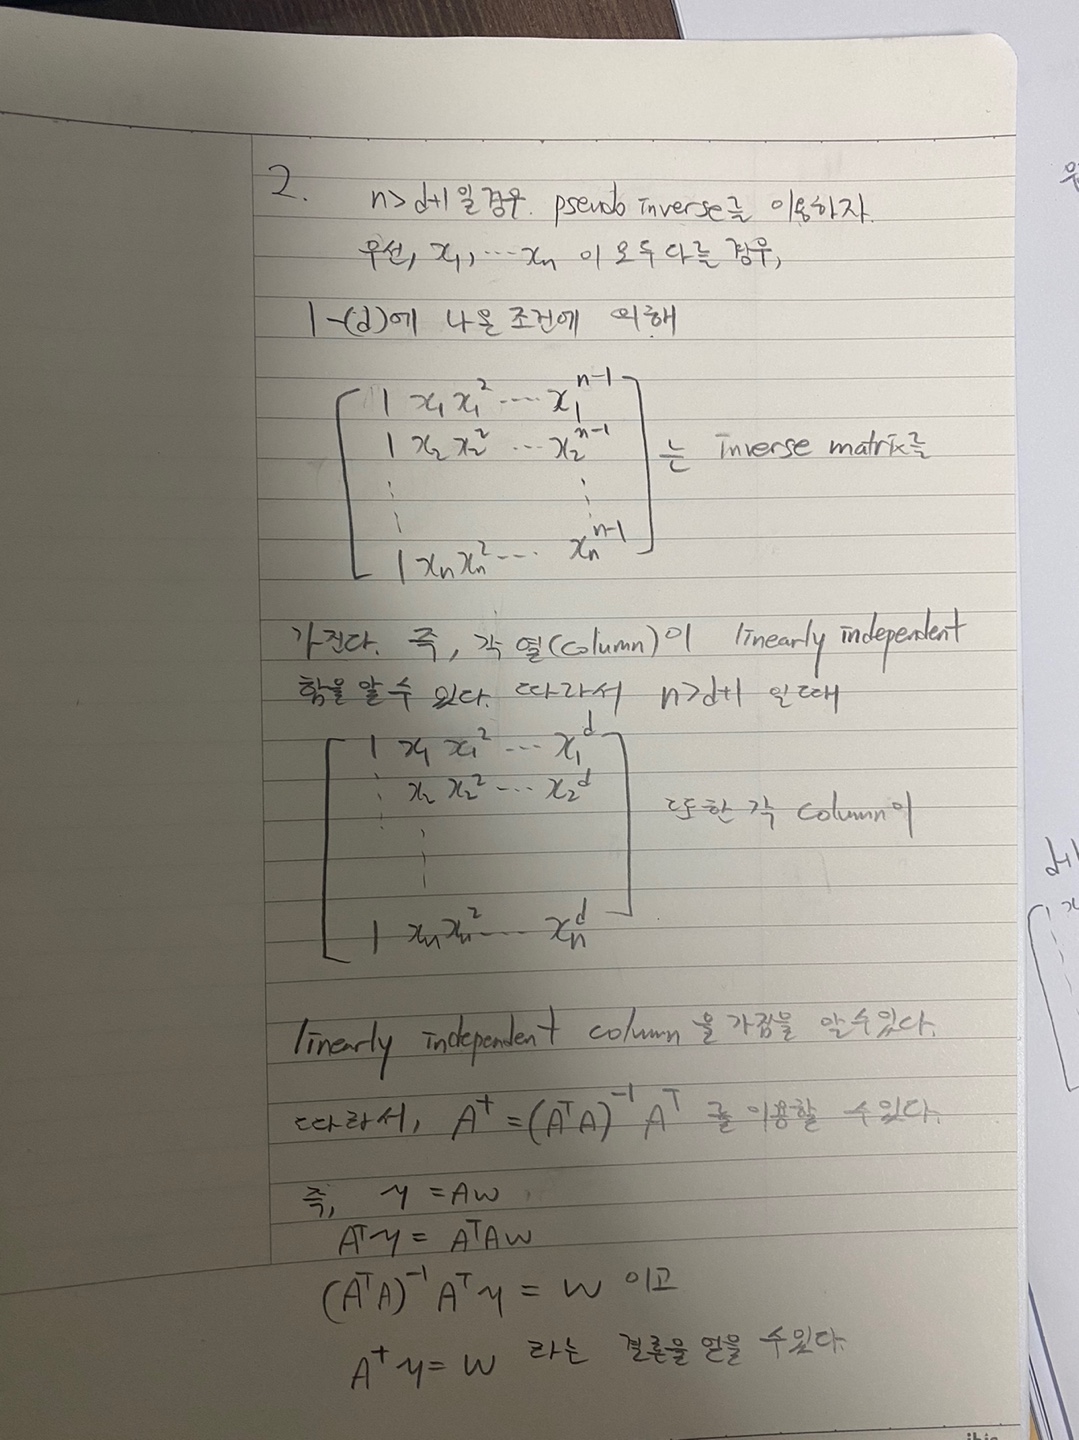 2. n>d+1일 경우. pseudo inverse를 이용하자.
우선, x₁, ⋯ xₙ 이 모두 다를 경우,
1-(d)에 나온 조건에 의해
1 x₁ x₁² ⋯ x₁ⁿ⁻¹
1 x₂ x₂² ⋯ x₂ⁿ⁻¹ 는 inverse matrix를
⋮ ⋮
1 xₙ xₙ² ⋯ xₙⁿ⁻¹
가진다. 즉, 각 열(column)이 linearly independent
함을 알 수 있다. 따라서 n>d+1 일 때
1 x₁ x₁² ⋯ x₁ᵈ
⋮ x₂ x₂² ⋯ x₂ᵈ 또한 각 column이
⋮
1 xₙ xₙ² ⋯ xₙᵈ
linearly independent column을 가짐을 알 수 있다.
따라서, A⁺ = (AᵀA)⁻¹ Aᵀ 를 이용할 수 있다.
즉, y = Aw
Aᵀy = AᵀAw
(AᵀA)⁻¹ Aᵀ y = w 이고
A⁺ y = w 라는 결론을 얻을 수 있다.